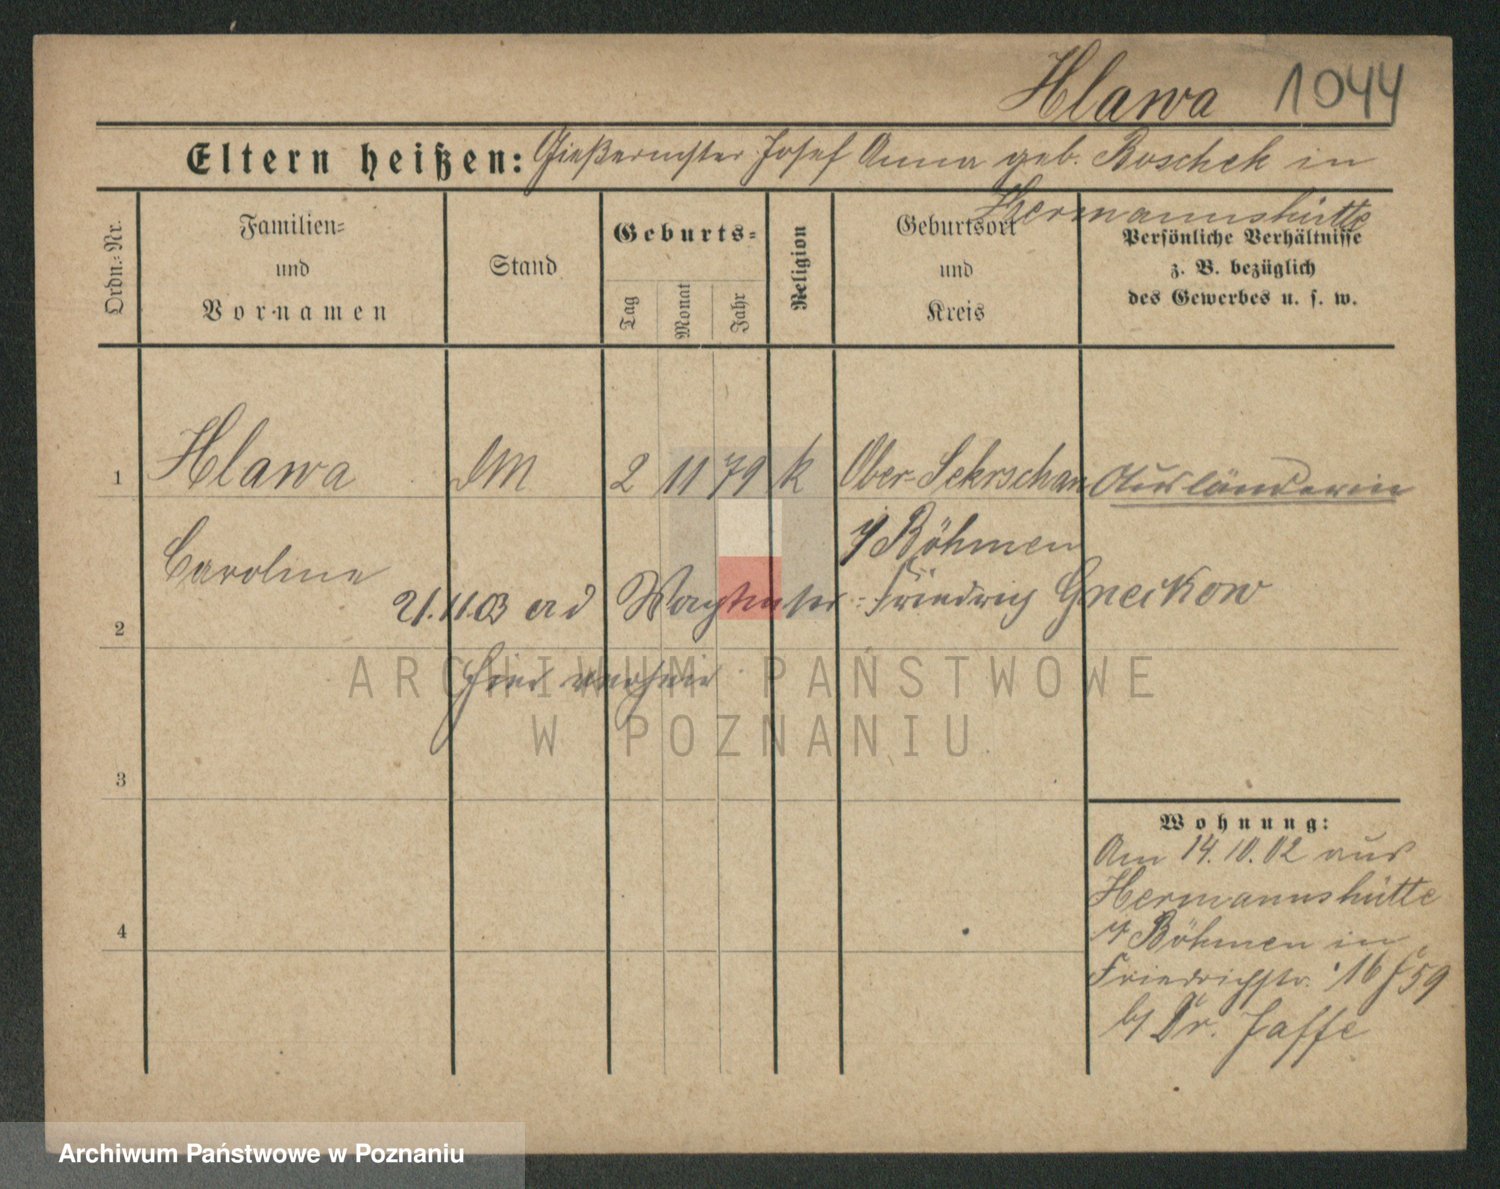 Hlawa 1044
Eltern heißen: Gießermster Josef Anna geb. Roschek in
Hermannshütte
Ordn.-Nr.
Familien-
und
Vornamen
Stand
Geburts-
Tag
Monat
Jahr
Religion
Geburtsort
und
Kreis
Persönliche Verhältnisse
z. B. bezüglich
des Gewerbes u. s. w.
1 Hlawa DM 2 11 79 k Ober-Sekrschan Ausländerin
i/ Böhmen
Caroline
21.11.03 Friedrich Gneikow
2
hier
ARCHIWUM PAŃSTWOWE
W POZNANIU
3
Wohnung:
Am 14.10.02 aus
Hermannshütte
4
i/ Böhmen in
Friedrichstr. 16 59
b/ Dr. Jaffe
Archiwum Państwowe w Poznaniu